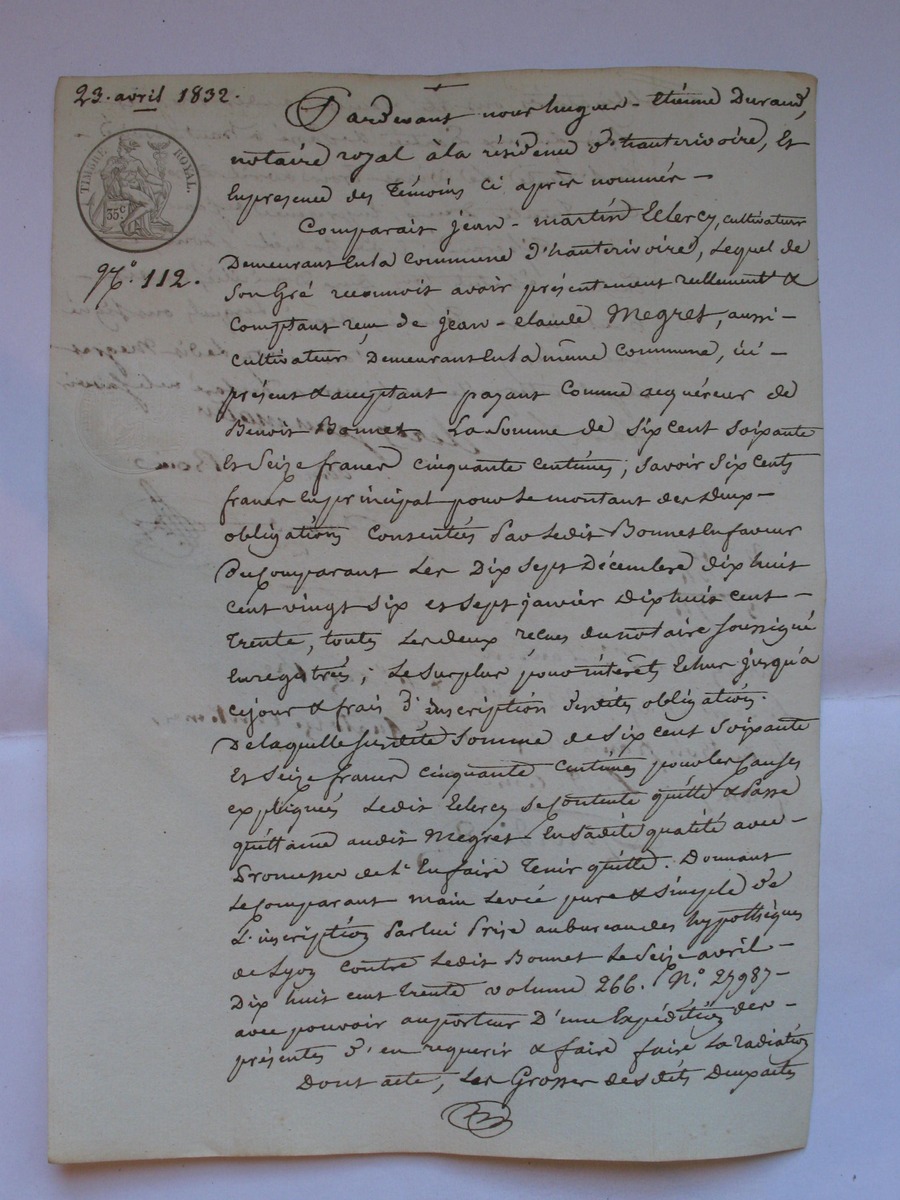 23. avril 1832.
TIMBRE ROYAL.
35c
N.º 112.
Pardevant nous hugues-étienne Durand,
notaire royal à la résidence d'hauterivoire, Et
En presence des Témoins ci après nommés —
Comparait jean-martin Leclercq, cultivateur
Demeurant En la Commune d'hauterivoire, Lequel de
Son Gré reconnoit avoir présentement réellement &
Comptant reçu de jean-claude Megret, aussi-
cultivateur Demeurant En la même Commune, ici-
présent & acceptant payant Comme acquéreur de
Benoit Bonnet La Somme de Six Cent Soixante
Et Seize francs cinquante centimes; Savoir Six Cents
francs En principal pour Le montant des deux-
obligations Consenties Par Ledit Bonnet En faveur
Du Comparant Les Dix Sept Décembre dix huit
Cent vingt Six et Sept janvier Dix huit Cent-
Trente, toutes Les deux reçues du notaire Soussigné
Enregistrés; Le Surplus pour intérêts Echus jusqu'a
Cejour & frais d'inscription desdites obligations.
De laquelle Susdite Somme de Six Cent Soixante
Et Seize francs cinquante Centimes pour les Causes
expliqués Ledit Leclercq Se Contente quitte & Passe
quittance audit Megret En Sadite qualité avec-
Promesse de L'En faire Tenir quitte. Donnant
Le Comparant main Levée pure & Simple de
L'inscription Par lui Prise au bureau des hypothèques
de Lyon Contre Ledit Bonnet Le Seize avril-
Dix huit Cent Trente volume 266. N.º 27987-
avec pouvoir au porteur D'une Expédition des-
présentes d'en requerir & faire faire La radiation
Dont acte, Les Grosses desdits Deux actes